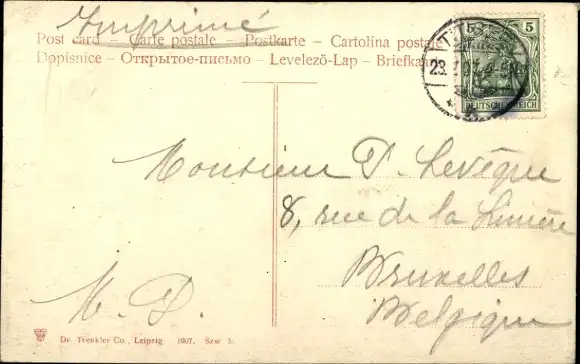 Imprimé
Post card – Carte postale – Postkarte – Cartolina postale
Dopisnice – Открытое-письмо – Levelező-Lap – Briefka
5 5
23.
DEUTSCHES REICH
Monsieur P. Levêque
8, rue de la Limite
Bruxelles
Belgique
M. D.
Dr. Trenkler Co., Leipzig 1907. Szw 3.